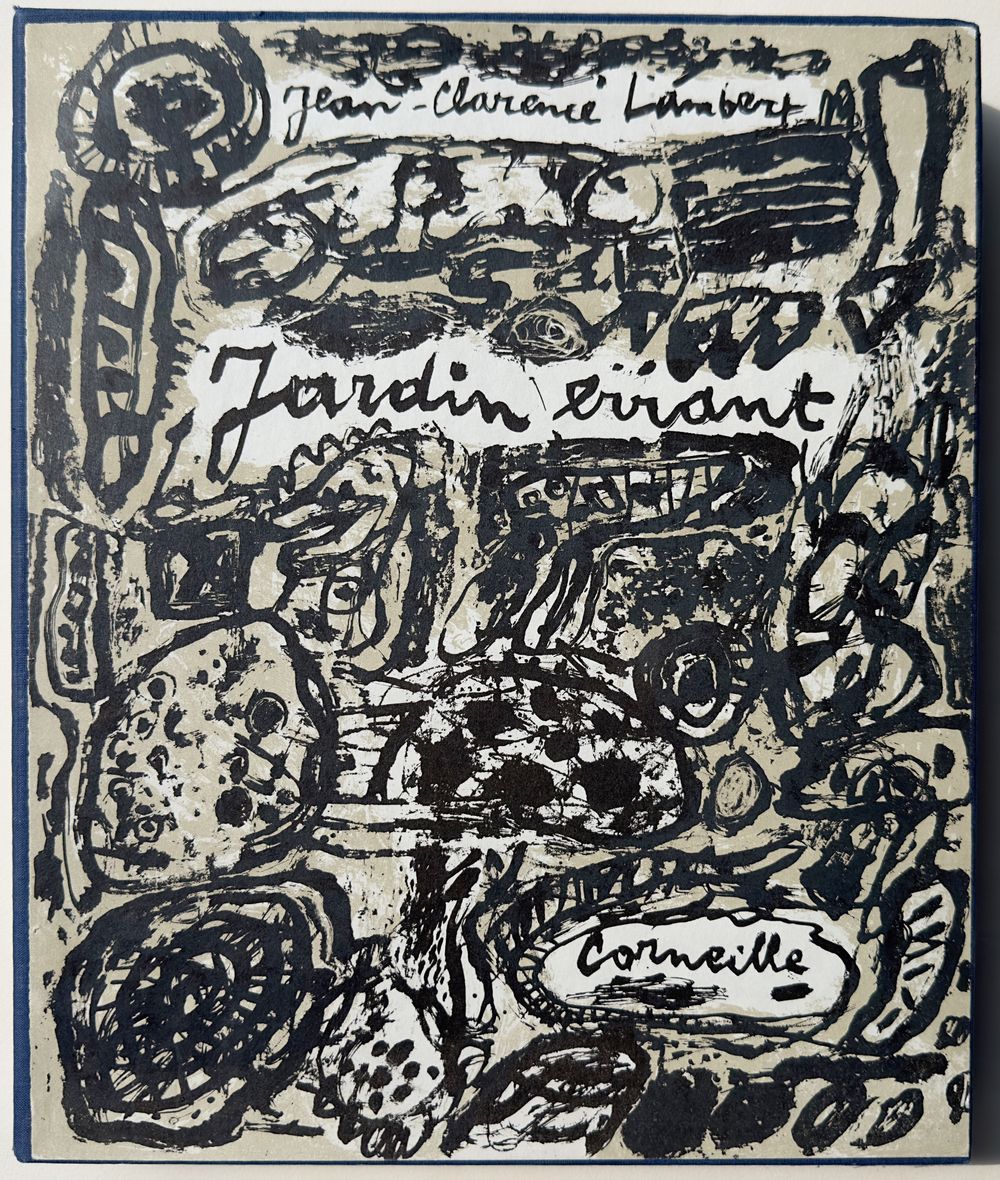 Jean-Clarence Lambert
Jardin errant
Corneille